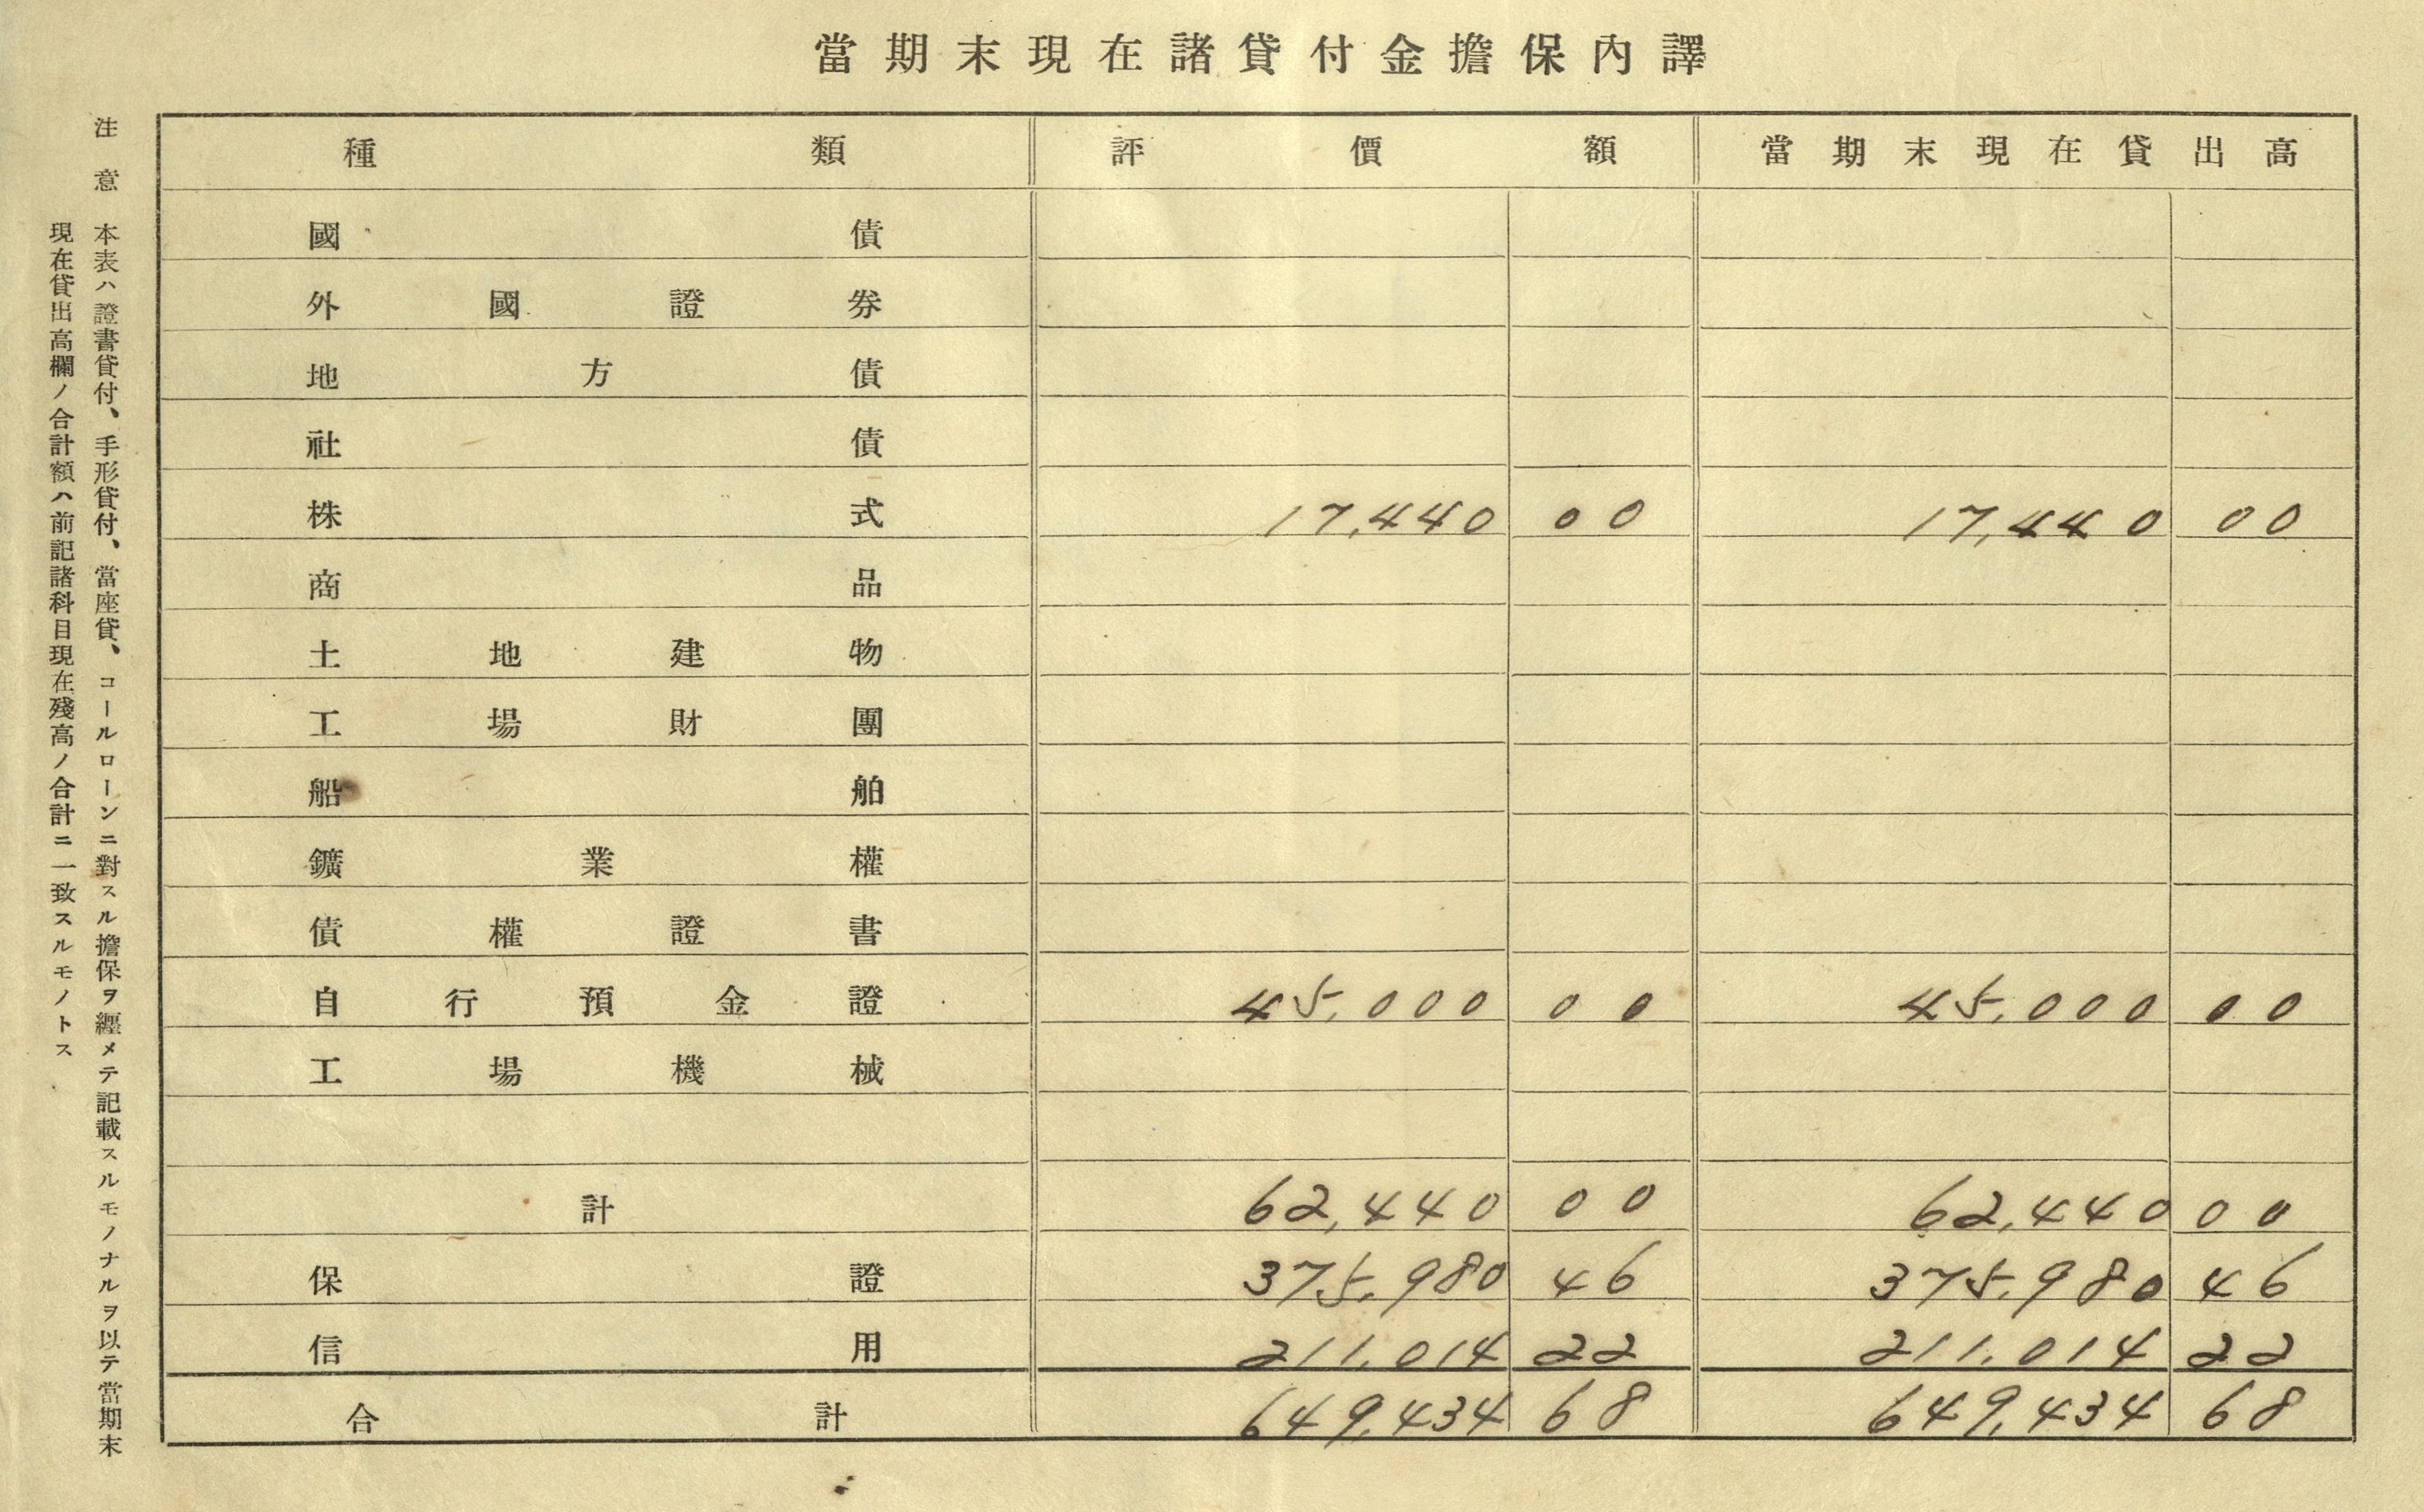 當期末現在諸貸付金擔保內譯
種類 評價額 當期末現在貸出高
國債
外國證券
地方債
社債
株式 17,440 00 17,440 00
商品
土地建物
工場財團
船舶
鑛業權
債權證書
自行預金證 45,000 00 45,000 00
工場機械
計 62,440 00 62,440 00
保證 375,980 46 375,980 46
信用 211,014 22 211,014 22
合計 649,434 68 649,434 68
注意 本表ハ證書貸付、手形貸付、當座貸、コールローンニ對スル擔保ヲ纒メテ記載スルモノナルヲ以テ當期末
現在貸出高欄ノ合計額ハ前記諸科目現在殘高ノ合計ニ一致スルモノトス